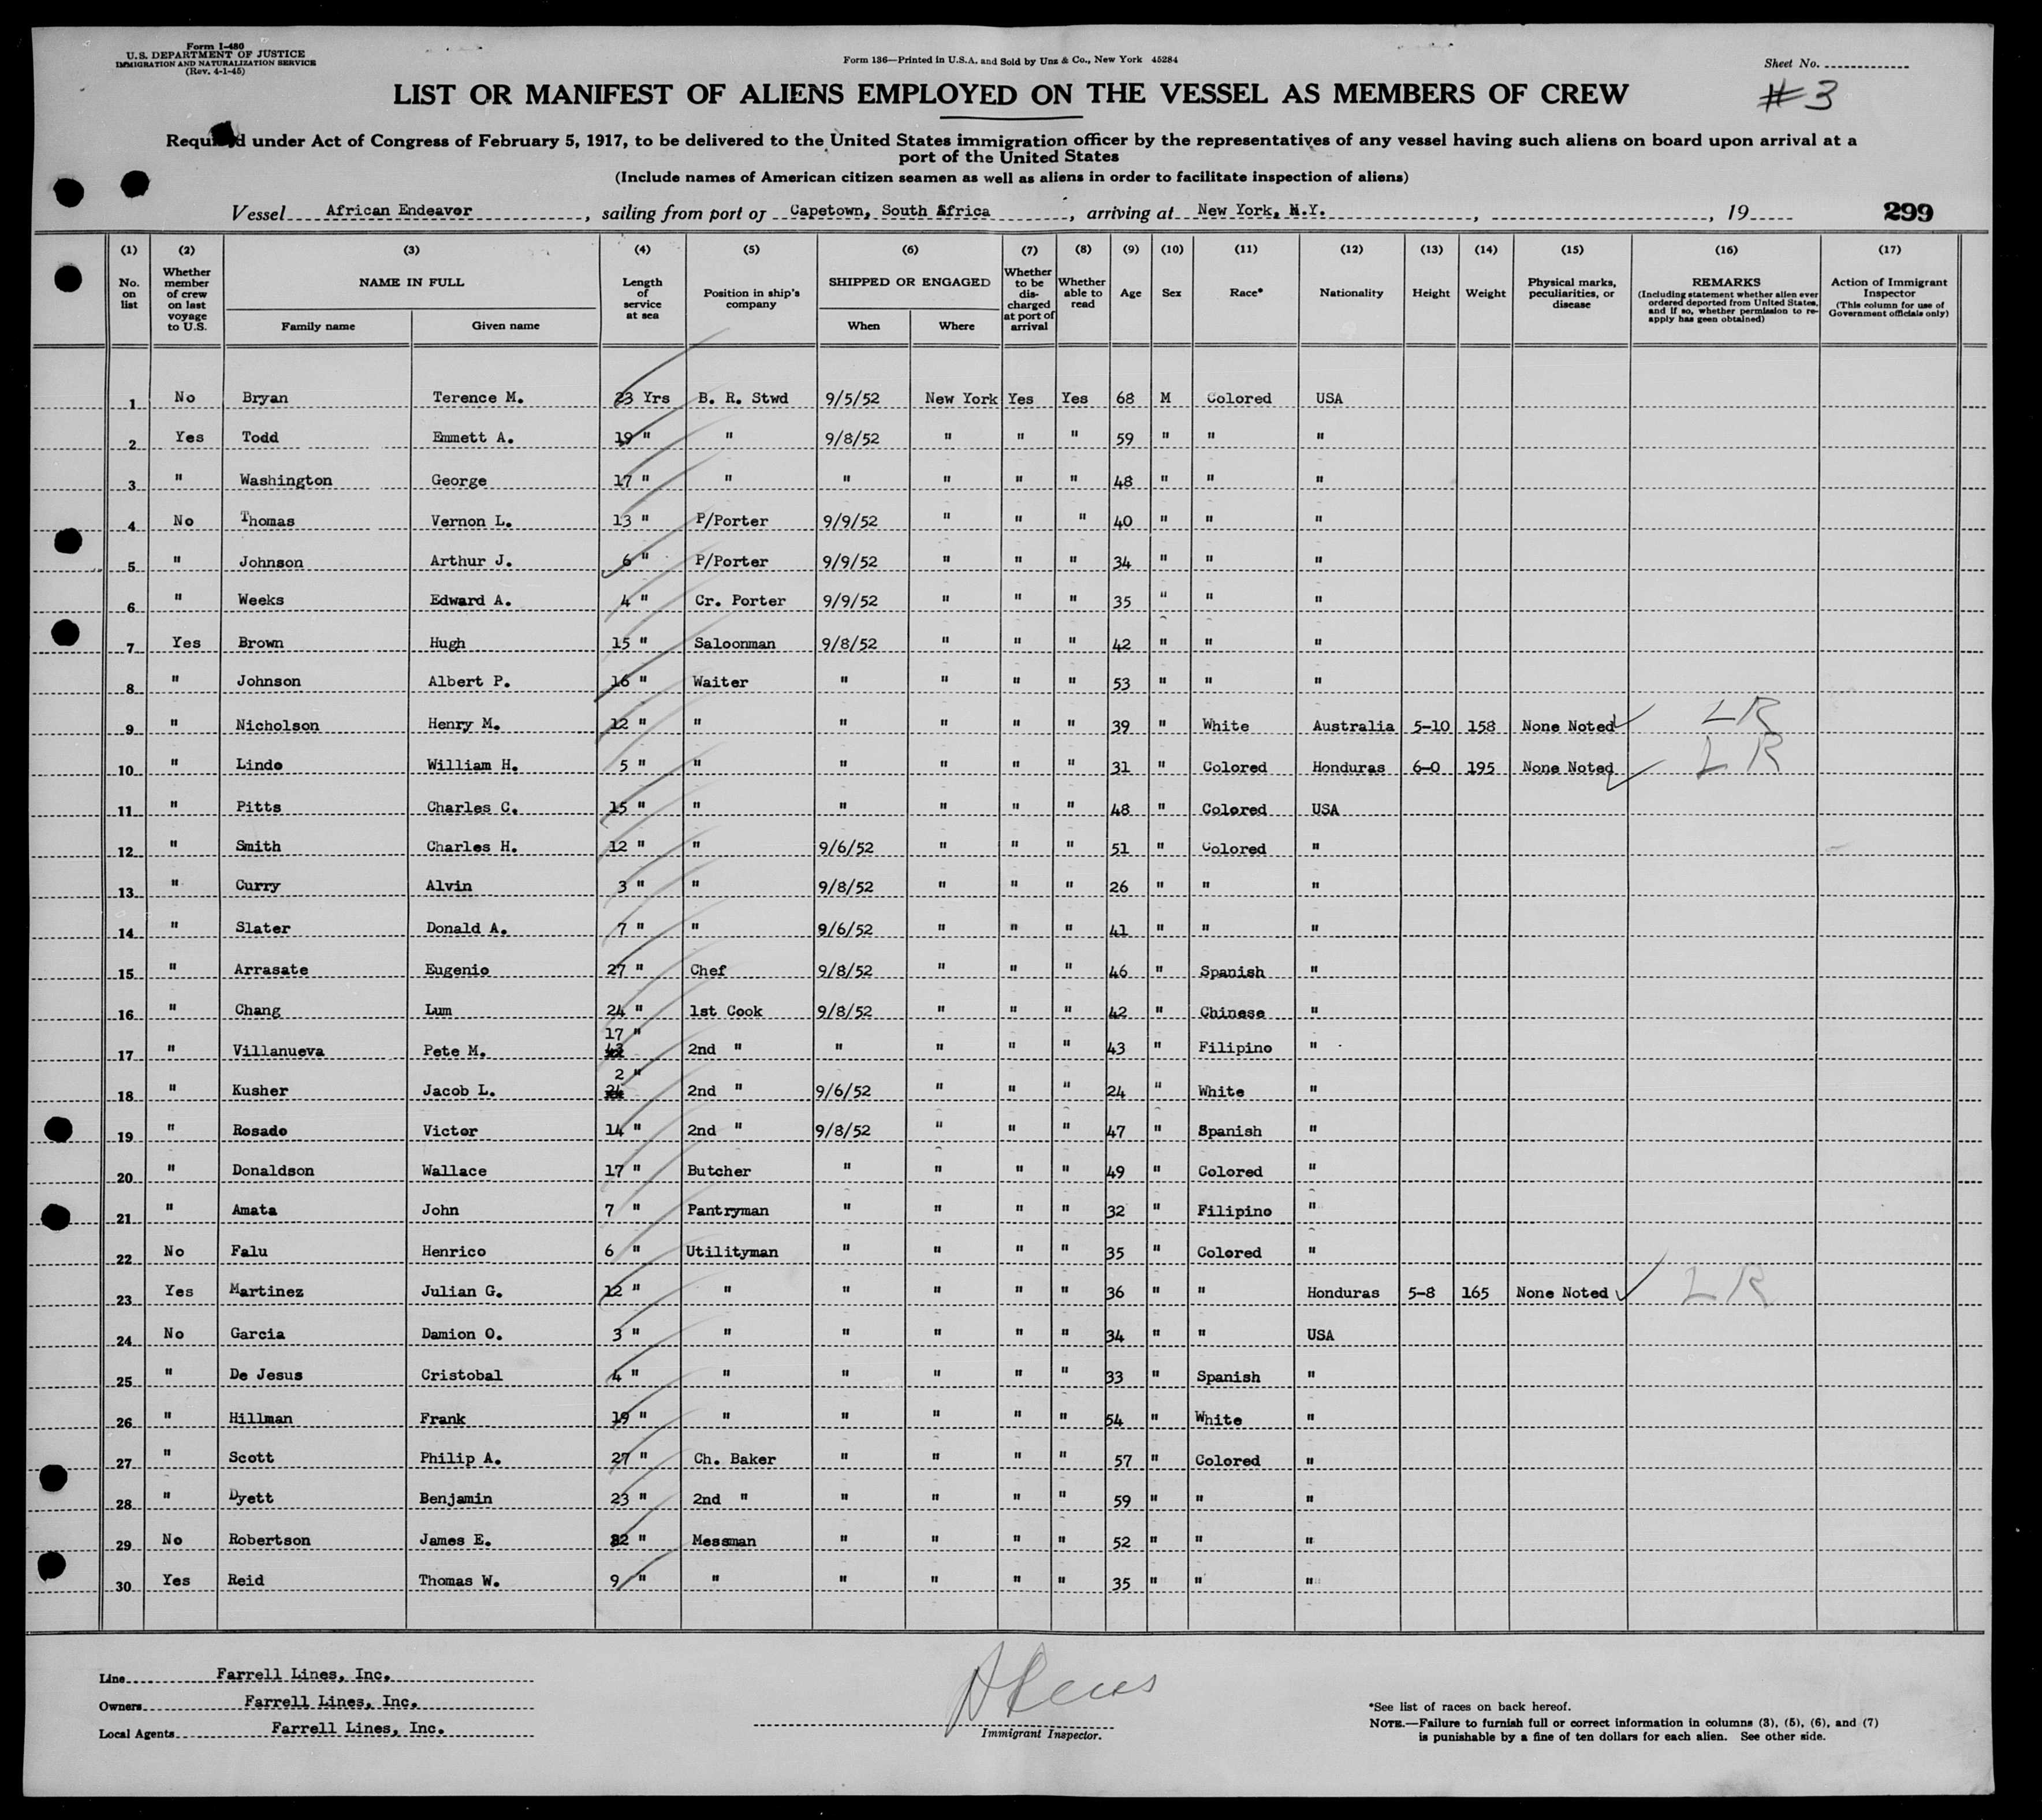 Form I-480
U.S. DEPARTMENT OF JUSTICE
IMMIGRATION AND NATURALIZATION SERVICE
(Rev. 4-1-45)
Form 136—Printed in U.S.A. and Sold by Unz & Co., New York 45284
Sheet No.
#3
LIST OR MANIFEST OF ALIENS EMPLOYED ON THE VESSEL AS MEMBERS OF CREW
Required under Act of Congress of February 5, 1917, to be delivered to the United States immigration officer by the representatives of any vessel having such aliens on board upon arrival at a
port of the United States
(Include names of American citizen seamen as well as aliens in order to facilitate inspection of aliens)
Vessel African Endeavor, sailing from port of Capetown, South Africa, arriving at New York, N.Y., , 19
299
(1) (2) (3) (4) (5) (6) (7) (8) (9) (10) (11) (12) (13) (14) (15) (16) (17)
No. on list
Whether member of crew on last voyage to U.S.
NAME IN FULL
Family name
Given name
Length of service at sea
Position in ship's company
SHIPPED OR ENGAGED
When
Where
Whether to be discharged at port of arrival
Whether able to read
Age
Sex
Race*
Nationality
Height
Weight
Physical marks, peculiarities, or disease
REMARKS
(Including statement whether alien ever ordered deported from United States, and if so, whether permission to re-apply has geen obtained)
Action of Immigrant Inspector
(This column for use of Government officials only)
1 No Bryan Terence M. 23 Yrs B. R. Stwd 9/5/52 New York Yes Yes 68 M Colored USA
2 Yes Todd Emmett A. 19 " " 9/8/52 " " " 59 " " "
3 " Washington George 17 " " " " " " 48 " " "
4 No Thomas Vernon L. 13 " P/Porter 9/9/52 " " " 40 " " "
5 " Johnson Arthur J. 6 " P/Porter 9/9/52 " " " 34 " " "
6 " Weeks Edward A. 4 " Cr. Porter 9/9/52 " " " 35 " " "
7 Yes Brown Hugh 15 " Saloonman 9/8/52 " " " 42 " " "
8 " Johnson Albert P. 16 " Waiter " " " " 53 " " "
9 " Nicholson Henry M. 12 " " " " " " 39 " White Australia 5-10 158 None Noted LR
10 " Lindo William H. 5 " " " " " " 31 " Colored Honduras 6-0 195 None Noted LR
11 " Pitts Charles C. 15 " " " " " " 48 " Colored USA
12 " Smith Charles H. 12 " " 9/6/52 " " " 51 " Colored "
13 " Curry Alvin 3 " " 9/8/52 " " " 26 " " "
14 " Slater Donald A. 7 " " 9/6/52 " " " 41 " " "
15 " Arrasate Eugenio 27 " Chef 9/8/52 " " " 46 " Spanish "
16 " Chang Lum 24 " 1st Cook 9/8/52 " " " 42 " Chinese "
17 " Villanueva Pete M. 17 " 2nd " " " " " 43 " Filipino "
18 " Kusher Jacob L. 2 " 2nd " 9/6/52 " " " 24 " White "
19 " Rosado Victor 14 " 2nd " 9/8/52 " " " 47 " Spanish "
20 " Donaldson Wallace 17 " Butcher " " " " 49 " Colored "
21 " Amata John 7 " Pantryman " " " " 32 " Filipino "
22 No Falu Henrico 6 " Utilityman " " " " 35 " Colored "
23 Yes Martinez Julian G. 12 " " " " " " 36 " " Honduras 5-8 165 None Noted LR
24 No Garcia Damion O. 3 " " " " " " 34 " " USA
25 " De Jesus Cristobal 4 " " " " " " 33 " Spanish "
26 " Hillman Frank 19 " " " " " " 54 " White "
27 " Scott Philip A. 27 " Ch. Baker " " " " 57 " Colored "
28 " Dyett Benjamin 23 " 2nd " " " " " 59 " " "
29 No Robertson James E. " Messman " " " " 52 " " "
30 Yes Reid Thomas W. 9 " " " " " " 35 " " "
Line Farrell Lines, Inc.
Owners Farrell Lines, Inc.
Local Agents Farrell Lines, Inc.
Immigrant Inspector.
*See list of races on back hereof.
NOTE.—Failure to furnish full or correct information in columns (3), (5), (6), and (7)
is punishable by a fine of ten dollars for each alien. See other side.